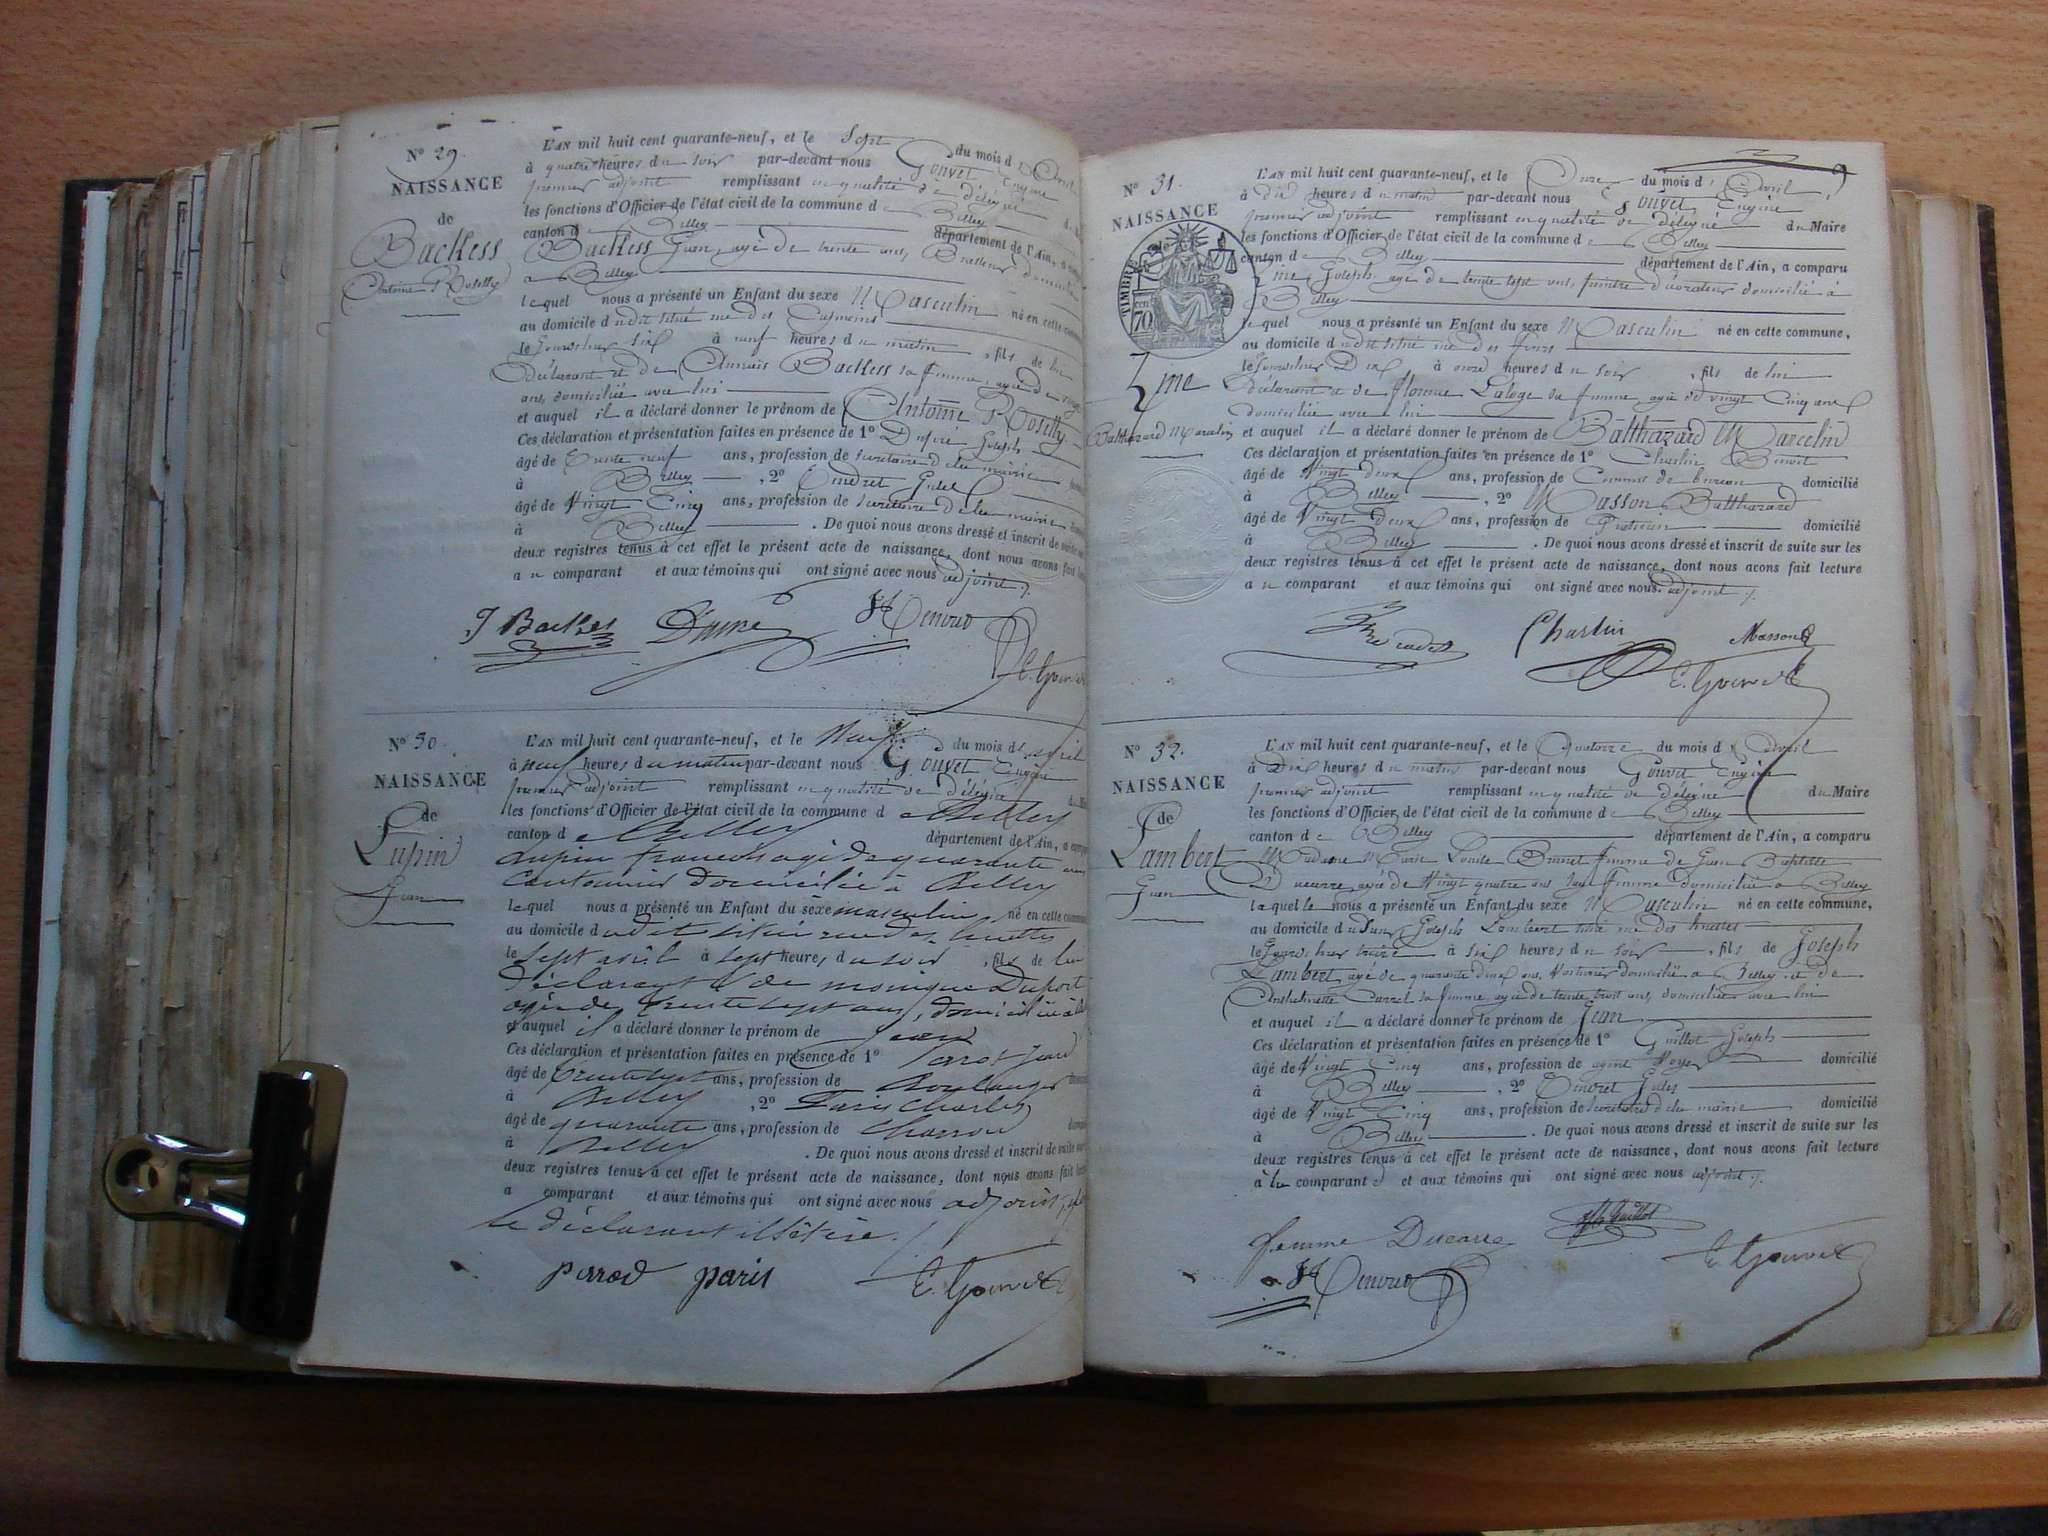 N° 29.
NAISSANCE
de
Backess
Antoine P Roselly
L'AN mil huit cent quarante-neuf, et le Sept du mois d'Avril
à quatre heures du soir par-devant nous Gouvet Eugène
premier adjoint remplissant en qualité de délégué
les fonctions d'Officier de l'état civil de la commune de Belley
canton de Belley département de l'Ain, a
Backess Jean, agé de trente ans, Brasseur domicilié
a Belley
lequel nous a présenté un Enfant du sexe Masculin né en cette
au domicile dudit situé rue des Capucins
le jourd'hier six à neuf heures du matin, fils de lui
Déclarant et de Backess sa femme, agée de vingt
ans, domiciliée avec lui
et auquel il a déclaré donner le prénom de Antoine P Roselly
Ces déclaration et présentation faites en présence de 1° Dupré Joseph
âgé de trente neuf ans, profession de Secrétaire de la mairie
à Belley, 2° Jules
âgé de Vingt Cinq ans, profession de Secrétaire de la mairie
à Belley. De quoi nous avons dressé et inscrit de suite
deux registres tenus à cet effet le présent acte de naissance, dont nous avons fait
au comparant et aux témoins qui ont signé avec nous adjoint
J Backes Dupré
E. Gouvet
N° 30.
NAISSANCE
de
Lupin
Jean
L'AN mil huit cent quarante-neuf, et le Neuf du mois d'avril
à neuf heures du matin par-devant nous Gouvet Eugène
premier adjoint remplissant en qualité de délégué
les fonctions d'Officier de l'état civil de la commune de Belley
canton de Belley département de l'Ain, a
Lupin françois agé de quarante ans
Cantonnier domicilié à Belley
lequel nous a présenté un Enfant du sexe masculin né en cette
au domicile dudit situé rue des huttes
le sept avril à sept heures du soir, fils de lui
déclarant & de monique Duport
agée de trente sept ans, domiciliée à
et auquel il a déclaré donner le prénom de Jean
Ces déclaration et présentation faites en présence de 1° Perrod Jean
âgé de trente sept ans, profession de Boulanger
à Belley, 2° Paris Charles
âgé de quarante ans, profession de Charron
à Belley. De quoi nous avons dressé et inscrit de suite
deux registres tenus à cet effet le présent acte de naissance, dont nous avons fait
a comparant et aux témoins qui ont signé avec nous adjoint,
le déclarant illétéré.
perrod paris E. Gouvet
9
N° 31.
NAISSANCE
de
TIMBRE
70
Balthazard Marcelin
L'AN mil huit cent quarante-neuf, et le Onze du mois d'Avril
à dix heures du matin par-devant nous Gouvet Eugène
premier adjoint remplissant en qualité de délégué du Maire
les fonctions d'Officier de l'état civil de la commune de Belley
canton de Belley département de l'Ain, a comparu
Joseph agé de trente sept ans, peintre décorateur domicilié à
Belley
lequel nous a présenté un Enfant du sexe Masculin né en cette commune,
au domicile dudit situé rue des fours
le jourd'hier Dix à onze heures du soir, fils de lui
déclarant et de Laloge sa femme agée de vingt Cinq ans
domiciliée avec lui
et auquel il a déclaré donner le prénom de Balthazard Marcelin
Ces déclaration et présentation faites en présence de 1° Charlin Benoit
âgé de Vingt deux ans, profession de Commis de bureau domicilié
à Belley, 2° Masson Balthazard
âgé de Vingt deux ans, profession de Praticien domicilié
à Belley. De quoi nous avons dressé et inscrit de suite sur les
deux registres tenus à cet effet le présent acte de naissance, dont nous avons fait lecture
au comparant et aux témoins qui ont signé avec nous adjoint
Charlin Masson
E. Gouvet
N° 32.
NAISSANCE
de
Lambert
Jean
L'AN mil huit cent quarante-neuf, et le Quatorze du mois d'Avril
à Dix heures du matin par-devant nous Gouvet Eugène
premier adjoint remplissant en qualité de délégué du Maire
les fonctions d'Officier de l'état civil de la commune de Belley
canton de Belley département de l'Ain, a comparu
Madame Marie Louise Brunet femme de Jean Baptiste
Ducarre, agée de Vingt quatre ans sage femme domiciliée a Belley
laquelle nous a présenté un Enfant du sexe Masculin né en cette commune,
au domicile du Sieur Joseph Lambert situé rue des huttes
le jourd'hier treize à six heures du soir, fils de Joseph
Lambert agé de quarante deux ans, domicilié a Belley et de
Carrel sa femme, agée de trente trois ans, domiciliée avec lui
et auquel il a déclaré donner le prénom de Jean
Ces déclaration et présentation faites en présence de 1° Guillot Joseph
âgé de Vingt Cinq ans, profession de agent Voyer domicilié
à Belley, 2° Jules
âgé de Vingt Cinq ans, profession de Secrétaire de la mairie domicilié
à Belley. De quoi nous avons dressé et inscrit de suite sur les
deux registres tenus à cet effet le présent acte de naissance, dont nous avons fait lecture
à la comparante et aux témoins qui ont signé avec nous adjoint
femme Ducarre Guillot
E. Gouvet